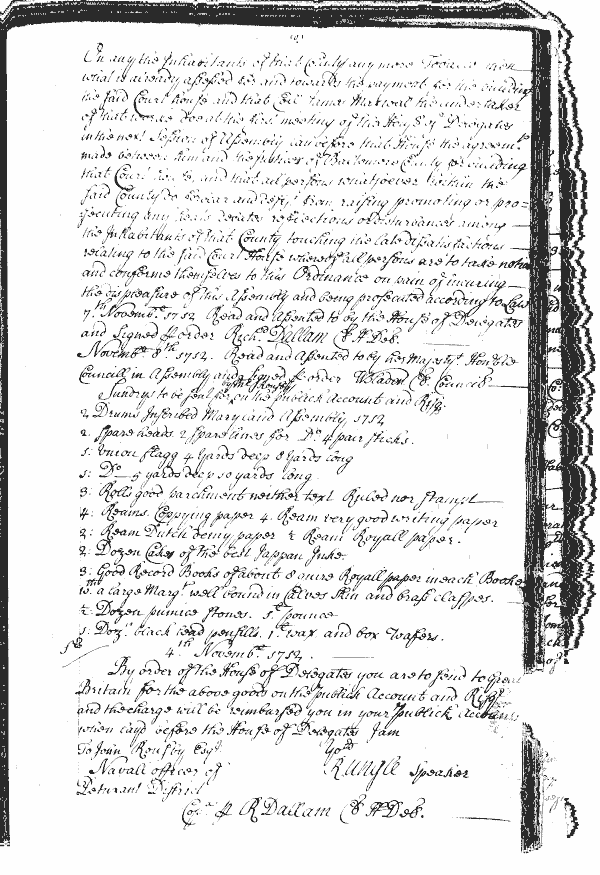 On any the Inhabitants of that County any more Tobacco then
what is already assessed for and towards the payment for the building
the said Court house and that Col. James Maxwell the undertaker
of that worke doe at the first meeting of the House of Delegates
in the next Session of Assembly lay before that House the agreemt.
made between him and the Justices of Baltemore County for building
that Court house, and that all persons whatsoever within the
said County do forbear and desist from raising promoting or pro=
secuting any reflections or disturbances among
the Inhabitants of that County touching the late dissatisfactions
relating to the said Court House whereof all persons are to take notice
and conforme themselves to this Ordinance on pain of incurring
the displeasure of this Assembly and being prosecuted according to Law
7th Novembr. 1712 Read and Assented to by the House of Delegates
and Signed p order Richd. Dallam Cl H Del.
Novembr 8th 1712. Read and Assented to by her Majestys Honble
Councill in Assembly and signed p order W Bladen Cl Council
Sundrys to be sent for on the publick Account and Risq.
2 Drums Inscribed Maryland Assembly 1712
2. Spare heads 2 Spare lines for Do. 4 pair sticks.
1: Union flagg 4 Yards deep 8 Yards long
1: Do 5 yards deep 10 yards long
3: Rolls good parchment neither text Ruled nor stampt
4: Reams Copying paper 4. Ream very good writing paper
2: Ream Dutch demy paper ½ Ream Royall paper.
2: Dozen Cakes of the best Jappan Inke.
3: Good Record Books of about 8 quire Royall paper in each Booke
wth. a large Margt. well bound in Calves Skin and brass claspes.
½ Dozen pumice stones. 5lb pounce
1: Doz. black lead pensills. 1lb wax and box wafers.
4th Novembr. 1712.
By order of the House of Delegates you are to send to Great
Britain for the above goods on the publick Account and Risq
and the charge will be reimbursed you in your publick Accounts
when layd before the House of Delegates I am
To John Rousby Esqr. Yors
Navall officer of R Ungle speaker
Petuxant District
Copa. p R Dallam Cl H Del.